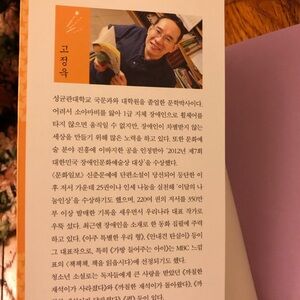 고정욱
성균관대학교 국문과와 대학원을 졸업한 문학박사이다.
어려서 소아마비를 앓아 1급 지체 장애인으로 휠체어를
타지 않으면 움직일 수 없지만, 장애인이 차별받지 않는
세상을 만들기 위해 많은 노력을 하고 있다. 또한 문화예
술 분야 진흥에 이바지한 공을 인정받아 '2012년 제7회
대한민국 장애인문화예술상 대상'을 수상했다.
〈문화일보〉 신춘문예에 단편소설이 당선되어 등단한 이
후 저서 가운데 25권이나 인세 나눔을 실천해 '이달의 나
눔인상'을 수상하기도 했으며, 220여 권의 저서를 350만
부 이상 발매한 기록을 세우면서 우리나라 대표 작가로
우뚝 섰다. 최근엔 장애인을 소재로 한 동화 집필에 주력
하고 있다. 《아주 특별한 우리 형》, 《안내견 탄실이》 등이
그 대표작으로, 특히 《가방 들어주는 아이》는 MBC 느낌
표의 〈책책책, 책을 읽읍시다〉에 선정되기도 했다.
청소년 소설로는 독자들에게 큰 사랑을 받았던 《까칠한
재석이가 사라졌다》와 《까칠한 재석이가 돌아왔다》, 《까